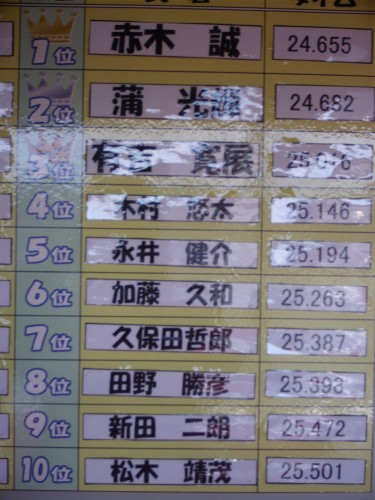 1位 赤木 誠 24.655
2位 蒲 光 24.682
3位 有吉 寛展
4位 木村 悠太 25.146
5位 永井 健介 25.194
6位 加藤 久和 25.263
7位 久保田哲郎 25.387
8位 田野 勝彦 25.393
9位 新田 二朗 25.472
10位 松木 靖茂 25.501